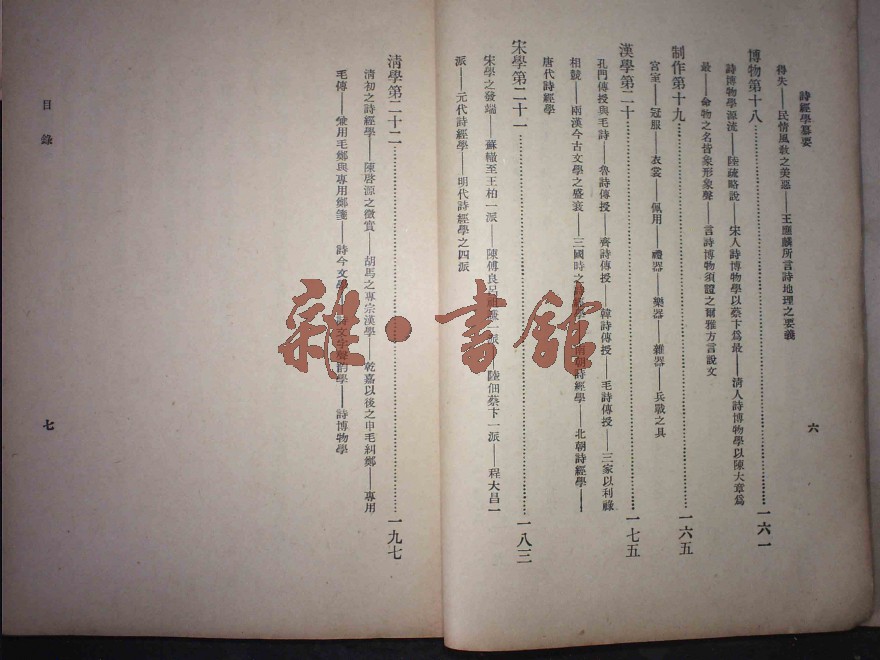 詩經學纂要
六
得失——民情風教之美惡——王應麟所言詩地理之要義
博物第十八……一六一
詩博物學源流——陸疏略說——宋人詩博物學以蔡卞爲最——清人詩博物學以陳大章爲
最——命物之名皆象形象聲——言詩博物須證之爾雅方言說文
制作第十九……一六五
宮室——冠服——衣裳——佩用——禮器——樂器——雜器——兵戰之具
漢學第二十……一七五
孔門傳授與毛詩——魯詩傳授——齊詩傳授——韓詩傳授——毛詩傳授——三家以利祿
相競——兩漢今古文學之盛衰——三國時之詩經學——南朝詩經學——北朝詩經學——
唐代詩經學
宋學第二十一……一八三
宋學之發端——蘇轍至王柏一派——陳傅良呂祖謙一派——陸佃蔡卞一派——程大昌一
派——元代詩經學——明代詩經學之四派
清學第二十二……一九七
清初之詩經學——陳啓源之徵實——胡馬之專宗漢學——乾嘉以後之申毛糾鄭——專用
毛傳——兼用毛鄭與專用鄭箋——詩今文學——詩文字聲韵學——詩博物學
目錄
七
雜·書館